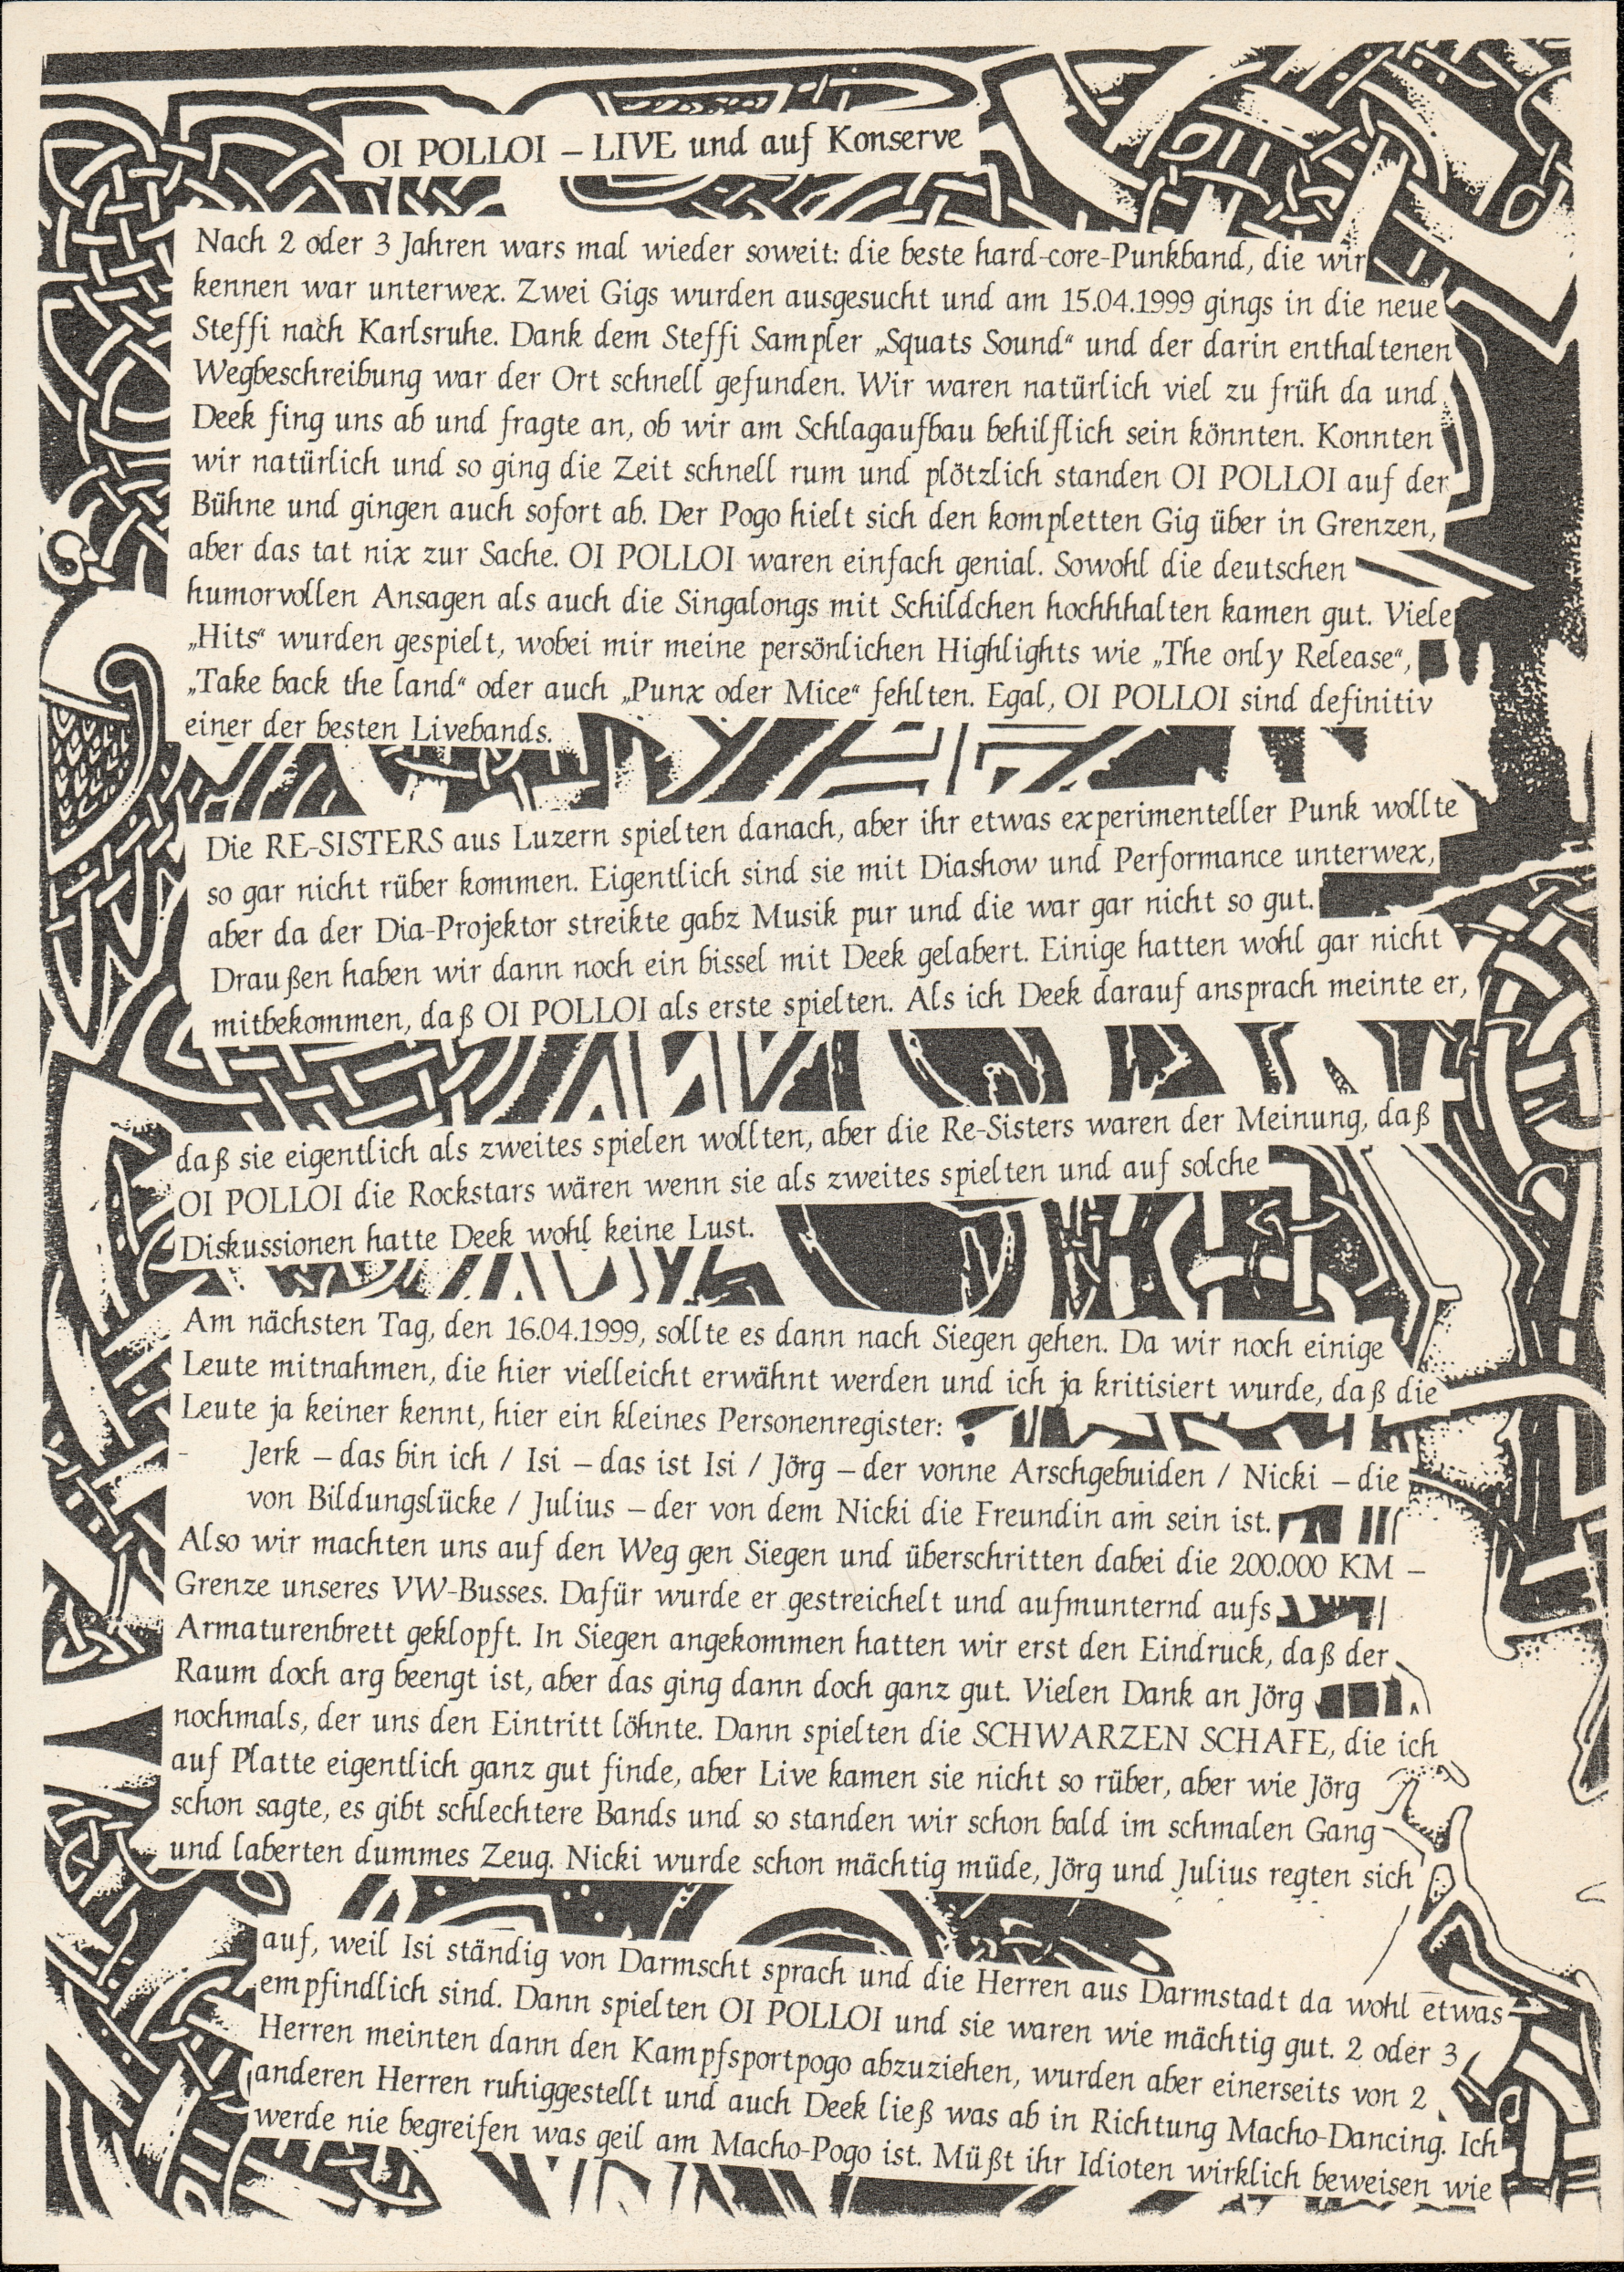 OI POLLOI – LIVE und auf Konserve
Nach 2 oder 3 Jahren wars mal wieder soweit: die beste hard-core-Punkband, die wir
kennen war unterwex. Zwei Gigs wurden ausgesucht und am 15.04.1999 gings in die neue
Steffi nach Karlsruhe. Dank dem Steffi Sampler „Squats Sound“ und der darin enthaltenen
Wegbeschreibung war der Ort schnell gefunden. Wir waren natürlich viel zu früh da und
Deek fing uns ab und fragte an, ob wir am Schlagaufbau behilflich sein könnten. Konnten
wir natürlich und so ging die Zeit schnell rum und plötzlich standen OI POLLOI auf der
Bühne und gingen auch sofort ab. Der Pogo hielt sich den kompletten Gig über in Grenzen,
aber das tat nix zur Sache. OI POLLOI waren einfach genial. Sowohl die deutschen
humorvollen Ansagen als auch die Singalongs mit Schildchen hochhhalten kamen gut. Viele
„Hits“ wurden gespielt, wobei mir meine persönlichen Highlights wie „The only Release“,
„Take back the land“ oder auch „Punx oder Mice“ fehlten. Egal, OI POLLOI sind definitiv
einer der besten Livebands.
Die RE-SISTERS aus Luzern spielten danach, aber ihr etwas experimenteller Punk wollte
so gar nicht rüber kommen. Eigentlich sind sie mit Diashow und Performance unterwex,
aber da der Dia-Projektor streikte gabz Musik pur und die war gar nicht so gut.
Draußen haben wir dann noch ein bissel mit Deek gelabert. Einige hatten wohl gar nicht
mitbekommen, daß OI POLLOI als erste spielten. Als ich Deek darauf ansprach meinte er,
daß sie eigentlich als zweites spielen wollten, aber die Re-Sisters waren der Meinung, daß
OI POLLOI die Rockstars wären wenn sie als zweites spielten und auf solche
Diskussionen hatte Deek wohl keine Lust.
Am nächsten Tag, den 16.04.1999, sollte es dann nach Siegen gehen. Da wir noch einige
Leute mitnahmen, die hier vielleicht erwähnt werden und ich ja kritisiert wurde, daß die
Leute ja keiner kennt, hier ein kleines Personenregister:
- Jerk – das bin ich / Isi – das ist Isi / Jörg – der vonne Arschgebuiden / Nicki – die
von Bildungslücke / Julius – der von dem Nicki die Freundin am sein ist.
Also wir machten uns auf den Weg gen Siegen und überschritten dabei die 200.000 KM –
Grenze unseres VW-Busses. Dafür wurde er gestreichelt und aufmunternd aufs
Armaturenbrett geklopft. In Siegen angekommen hatten wir erst den Eindruck, daß der
Raum doch arg beengt ist, aber das ging dann doch ganz gut. Vielen Dank an Jörg
nochmals, der uns den Eintritt löhnte. Dann spielten die SCHWARZEN SCHAFE, die ich
auf Platte eigentlich ganz gut finde, aber Live kamen sie nicht so rüber, aber wie Jörg
schon sagte, es gibt schlechtere Bands und so standen wir schon bald im schmalen Gang
und laberten dummes Zeug. Nicki wurde schon mächtig müde, Jörg und Julius regten sich
auf, weil Isi ständig von Darmscht sprach und die Herren aus Darmstadt da wohl etwas
empfindlich sind. Dann spielten OI POLLOI und sie waren wie mächtig gut. 2 oder 3
Herren meinten dann den Kampfsportpogo abzuziehen, wurden aber einerseits von 2
anderen Herren ruhiggestellt und auch Deek ließ was ab in Richtung Macho-Dancing. Ich
werde nie begreifen was geil am Macho-Pogo ist. Müßt ihr Idioten wirklich beweisen wie